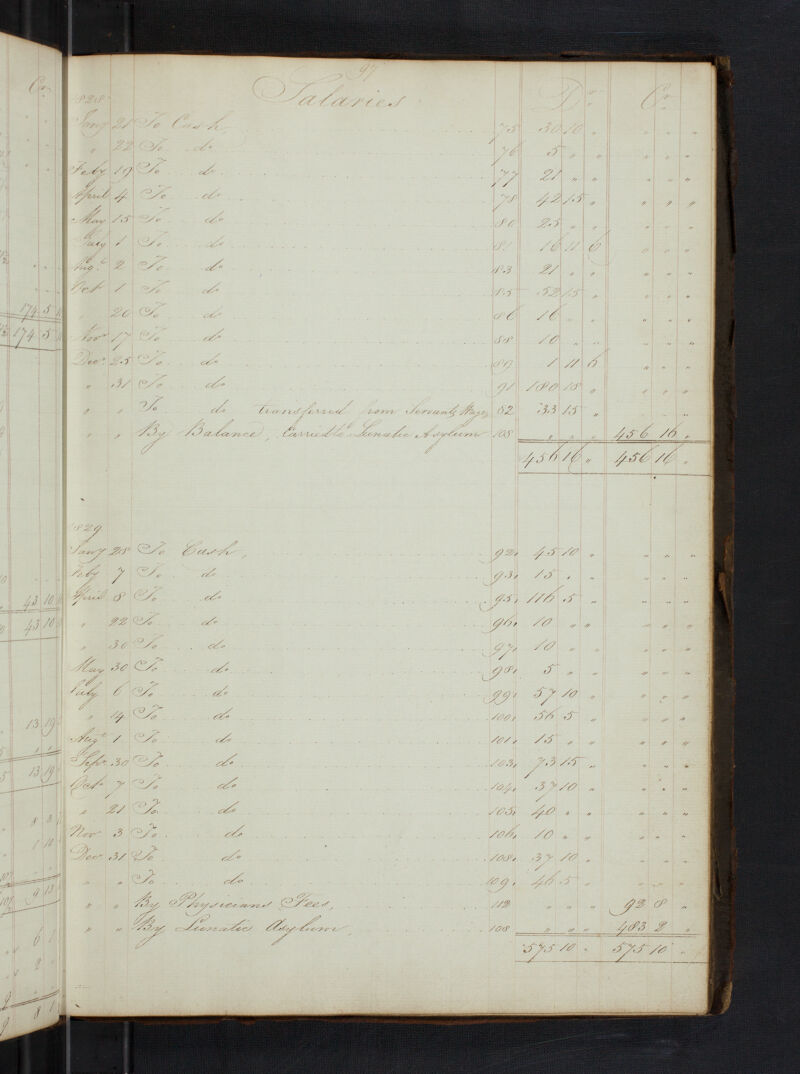 97
Salaries Dr. Cr.
1828
Jany 21 To Cash 75 30 10 "
" 22 To do 76 5 " "
Feby 19 To do 77 21 " "
April 4 To do 78 42 15 "
May 15 To do 80 25 " "
July 1 To do 81 16 11 6
Augt 2 To do 83 21 " "
Oct 1 To do 85 52 15 "
" 20 To do 86 16 " "
Novr 17 To do 88 10 " "
Decr 25 To do 89 1 11 6
" 31 To do 91 180 18 "
" " To do transferred from Servants Wages 82 33 15 "
" " By Balance, Carried to Lunatic Asylum 108 " " " 456 16 "
456 16 " 456 16 "
1829
Jany 28 To Cash, 92 45 10 "
Feby 7 To do 93 15 " "
April 8 To do 95 116 5 "
" 22 To do 96 10 " "
" 30 To do 97 10 " "
May 30 To do 98 5 " "
July 6 To do 99 57 10 "
" 14 To do 100 56 5 "
Augt 1 To do 101 15 " "
Sepr 30 To do 103 73 15 "
Octr 7 To do 104 37 10 "
" 21 To do 105 40 " "
Nov 3 To do 106 10 " "
Decr 31 To do 108 37 10 "
" " To do 109 46 5 "
" " By Physicians Fees, 112 " " " 92 8 "
" " By Lunatic Asylum, 108 " " " 483 2 "
575 10 " 575 10 "